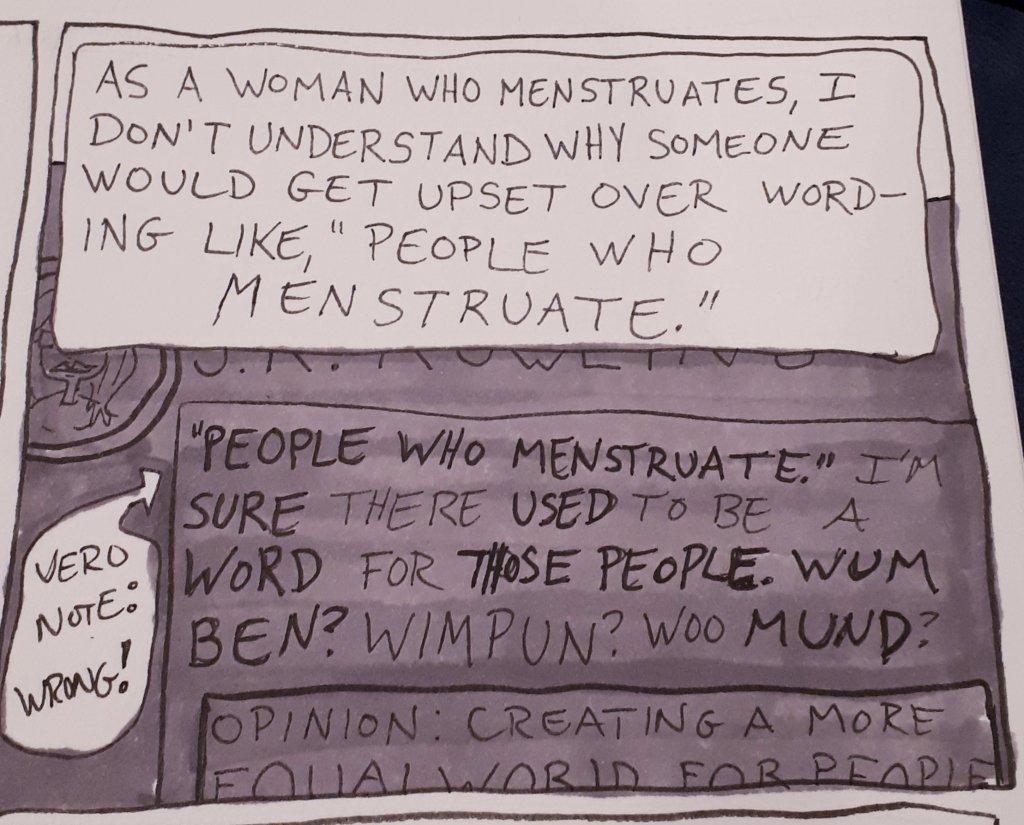 AS A WOMAN WHO MENSTRUATES, I
DON'T UNDERSTAND WHY SOMEONE
WOULD GET UPSET OVER WORD-
ING LIKE, "PEOPLE WHO
MENSTRUATE."
J.K. ROWLING
"PEOPLE WHO MENSTRUATE." I'M
SURE THERE USED TO BE A
WORD FOR THOSE PEOPLE. WUM
BEN? WIMPUN? WOO MUND?
VERO
NOTE:
WRONG!
OPINION: CREATING A MORE
EQUAL WORLD FOR PEOPLE